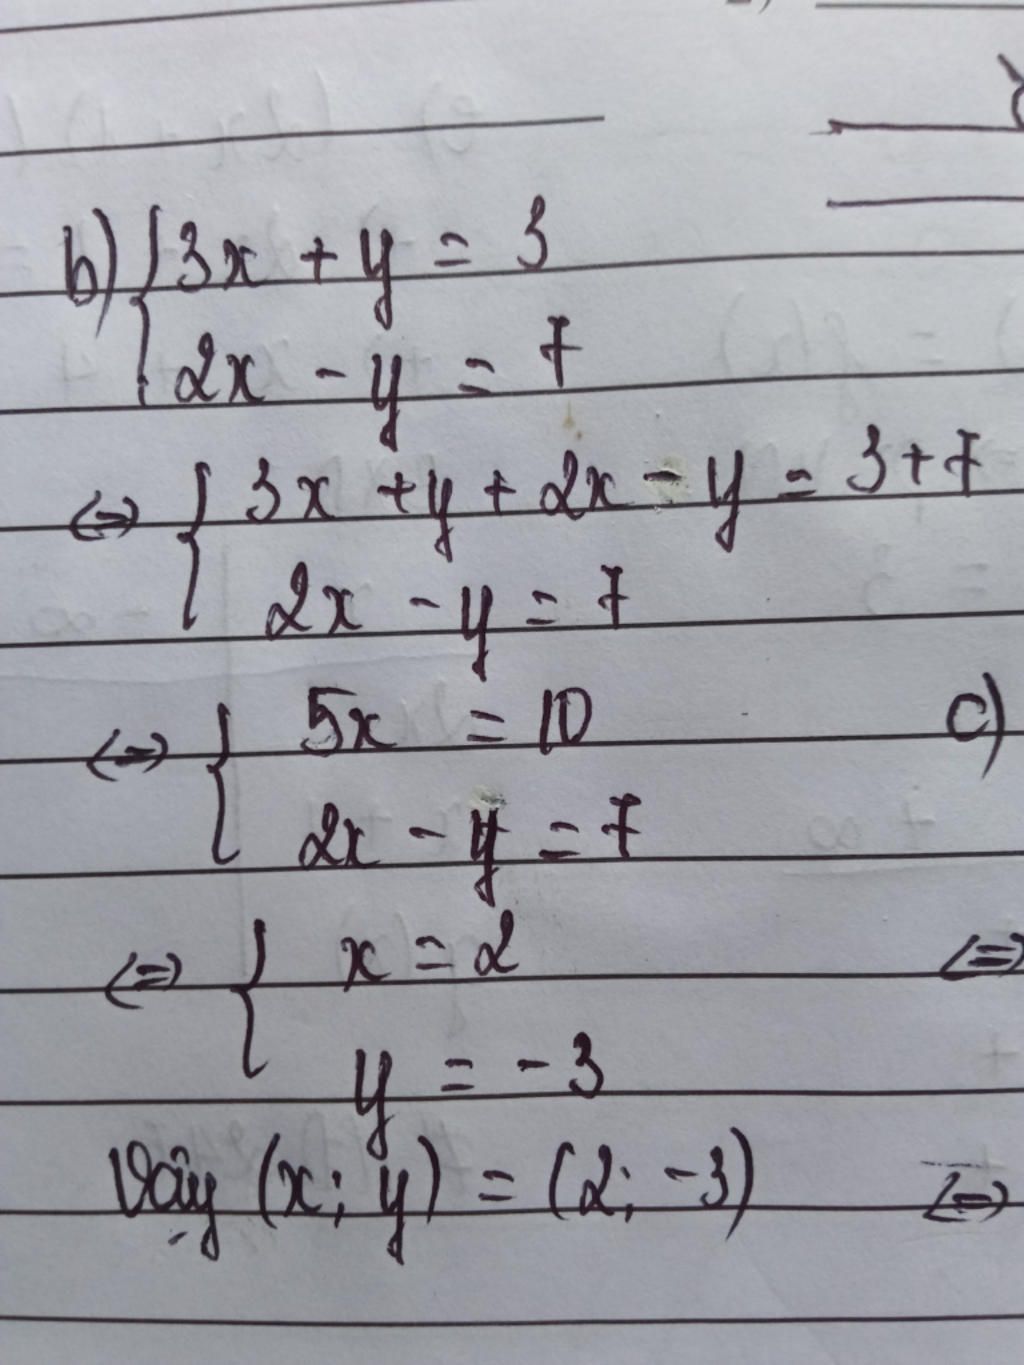 b) { 3x + y = 3
2x - y = 7
<=> { 3x + y + 2x - y = 3 + 7
2x - y = 7
<=> { 5x = 10
2x - y = 7
<=> { x = 2
y = -3
Vậy (x; y) = (2; -3)
c)
<=>
<=>